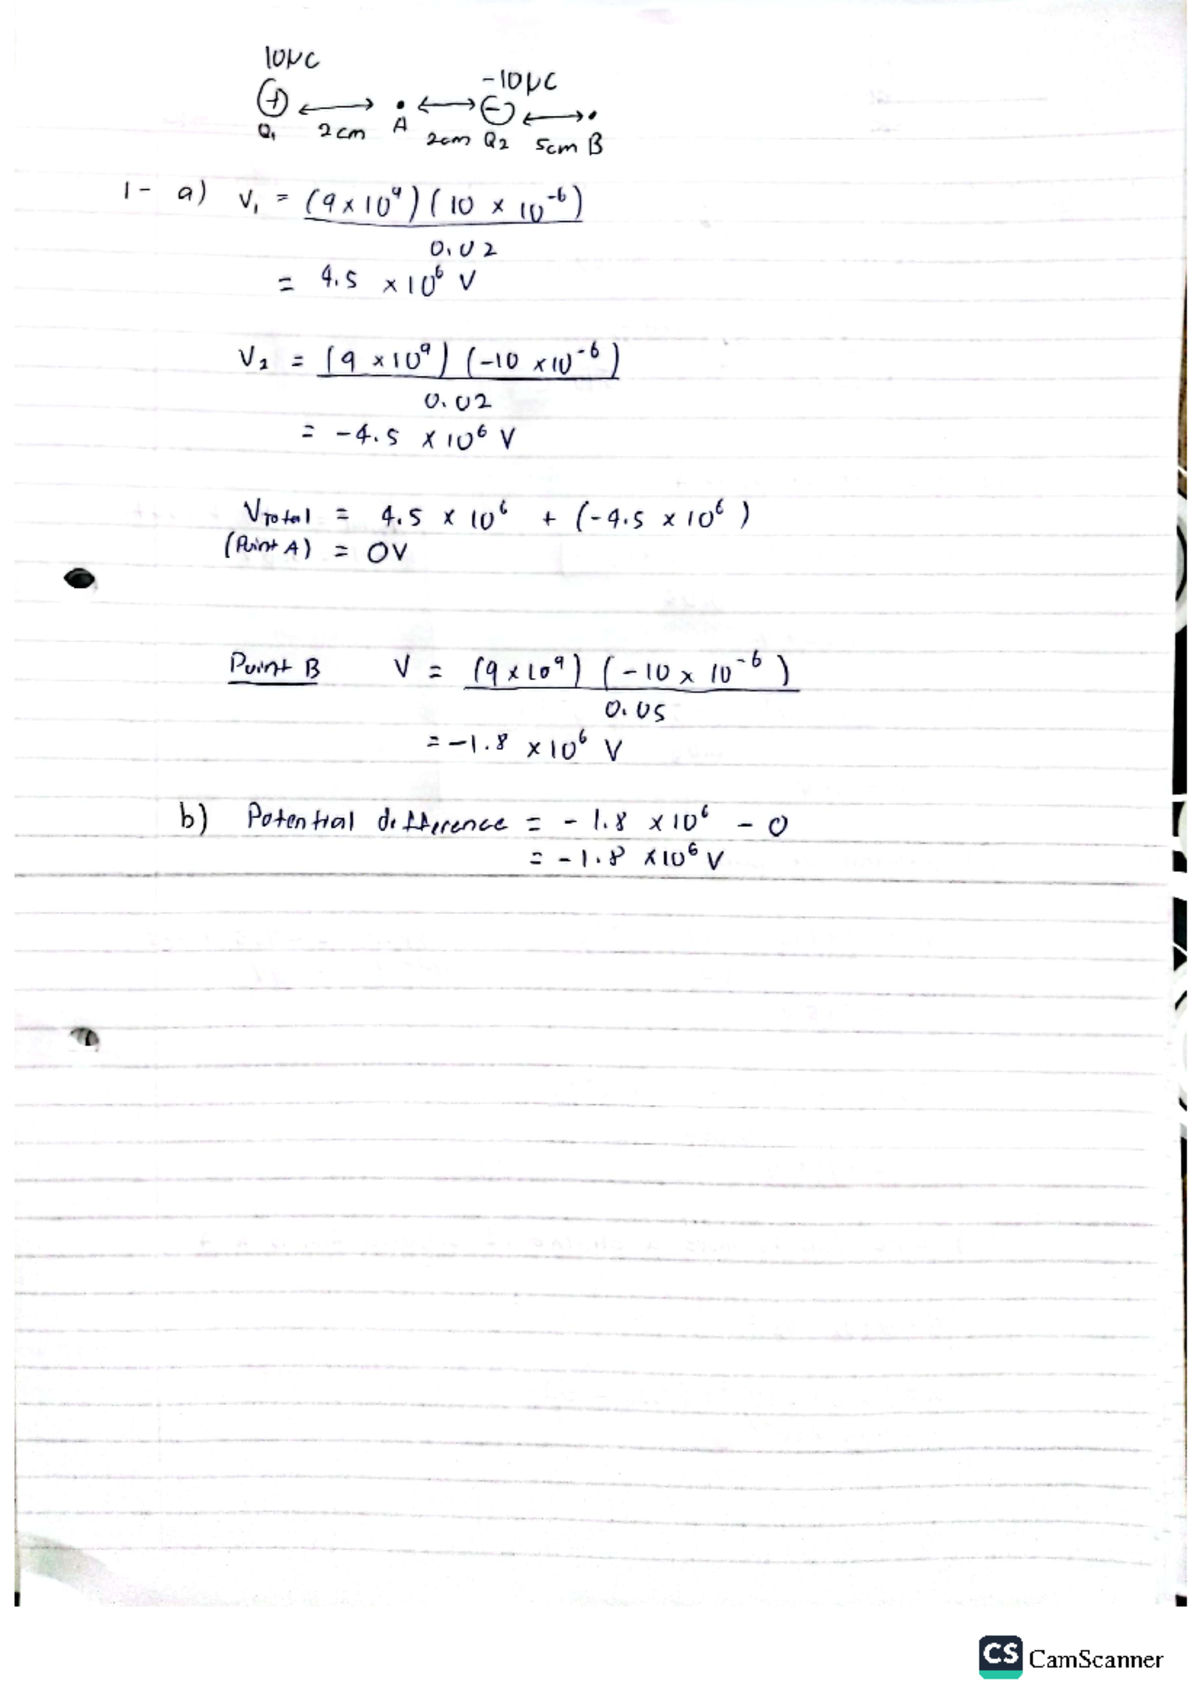 10μC
-10μC
+ A -
Q1 2cm 2cm Q2 5cm B
1- a) V1 = (9 × 10^9)(10 × 10^-6)
0.02
= 4.5 × 10^6 V
V2 = (9 × 10^9)(-10 × 10^-6)
0.02
= -4.5 × 10^6 V
VTotal = 4.5 × 10^6 + (-4.5 × 10^6)
(Point A) = 0V
Point B V = (9 × 10^9)(-10 × 10^-6)
0.05
= -1.8 × 10^6 V
b) Potential difference = -1.8 × 10^6 - 0
= -1.8 × 10^6 V
CS CamScanner